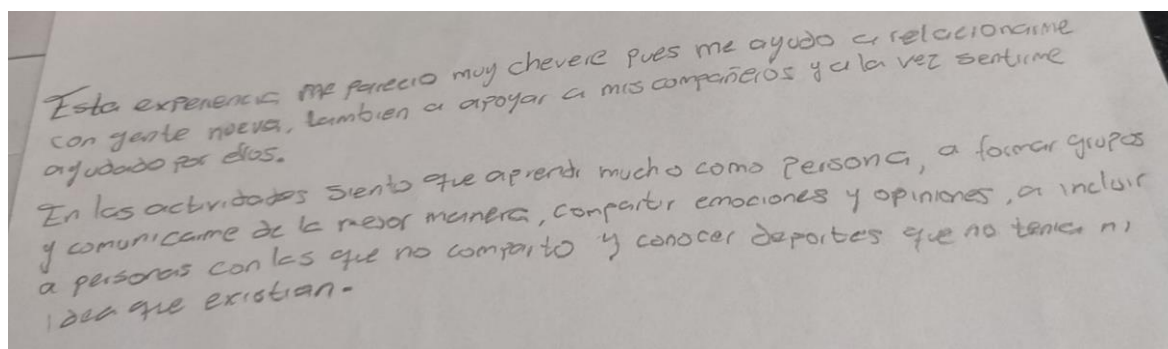 Esta experiencia me parecio muy chevere pues me ayudo a relacionarme
con gente nueva, tambien a apoyar a mis compañeros y a la vez sentirme
ayudado por ellos.
En las actividades siento que aprendi mucho como persona, a formar grupos
y comunicarme de la mejor manera, compartir emociones y opiniones, a incluir
a personas con las que no comparto y conocer deportes que no tenia ni
idea que existian.